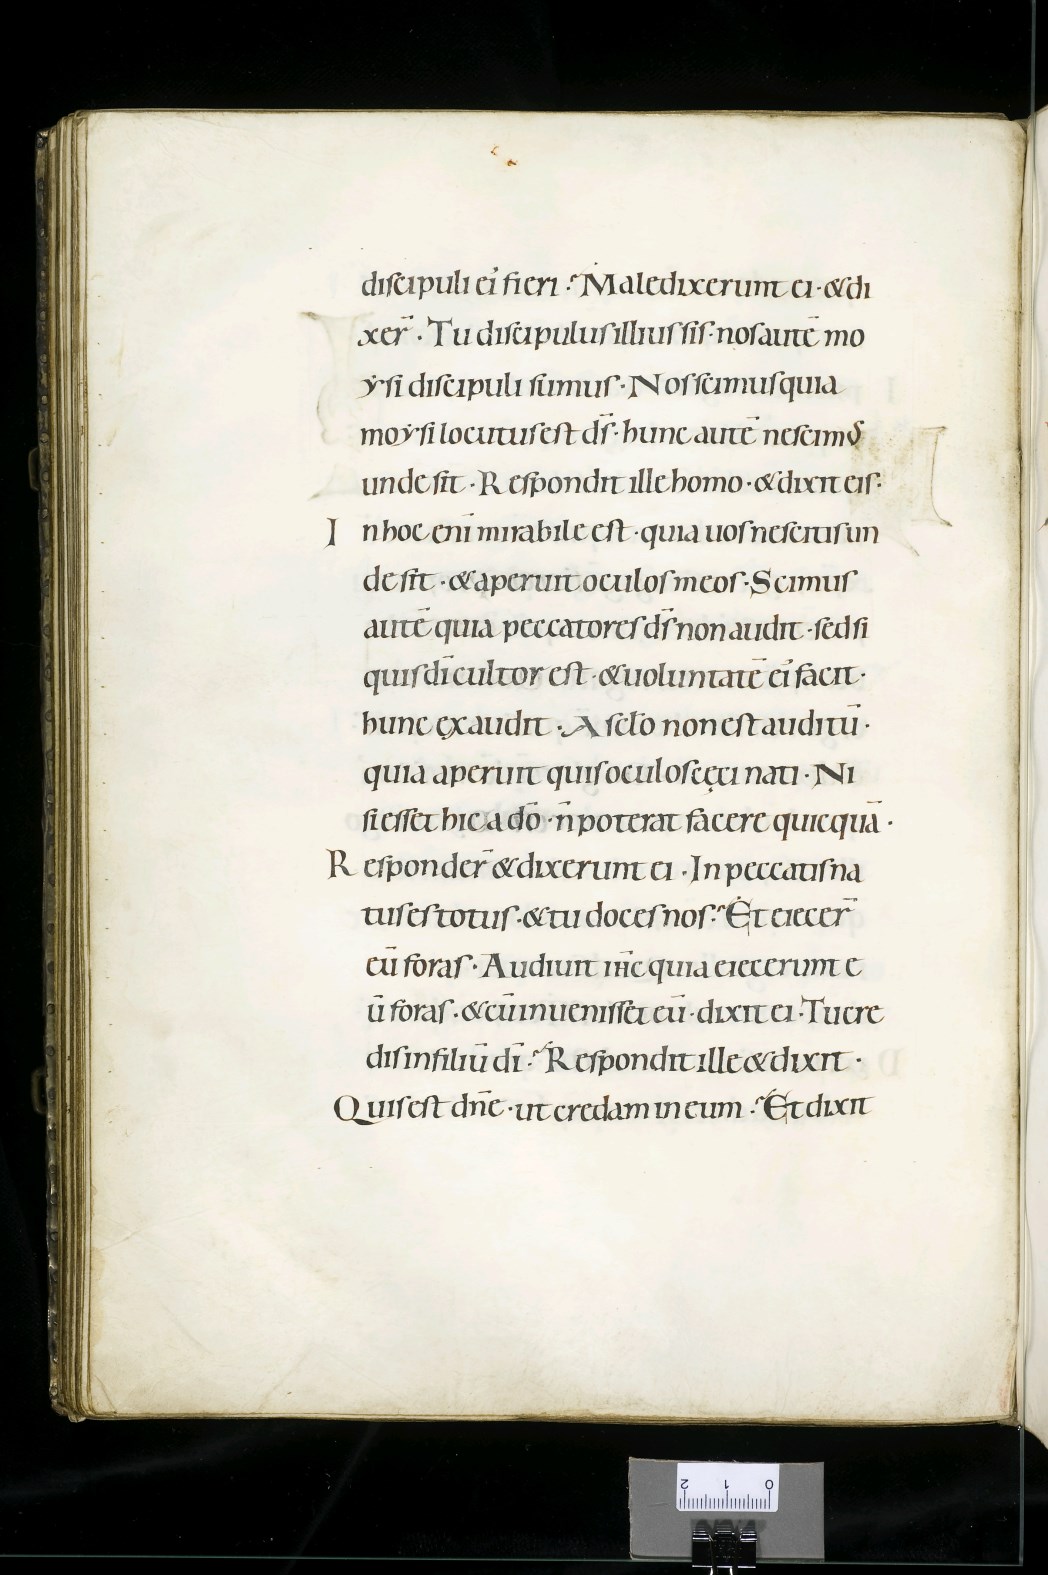 discipuli ei᾽ fieri ? Maledixerunt ei · & di
xer̄ · Tu discipulus illius sis · nos autē mo
ẏsi discipuli sumus · Nos scimus quia
moẏsi locutus est d̄s · hunc autē nescimꝰ
unde sit · Respondit ille homo · & dixit eis ·
In hoc eni̅ mirabile est · quia uos nescitis un
de sit · & aperuit oculos meos · Scimus
autē quia peccatores d̄s non audit · sed si
quis dī cultor est · & uoluntatē ei᾽ facit ·
hunc exaudit · A sclo̅ non est auditū ·
quia aperuit quis oculos cęci nati · Ni
si esset hic a dō · n̄ poterat facere quicquā ·
Responder̄ & dixerunt ei · In peccatis na
tus es totus · & tu doces nos ? Et eiecer̄
eū foras · Audiuit ih̅c quia eiecerunt e
ū foras · & cū inuenisset eū · dixit ei · Tu cre
dis in filiū dī ? Respondit ille & dixit ·
Quis est dn̅e · ut credam in eum ? Et dixit
0 1 2